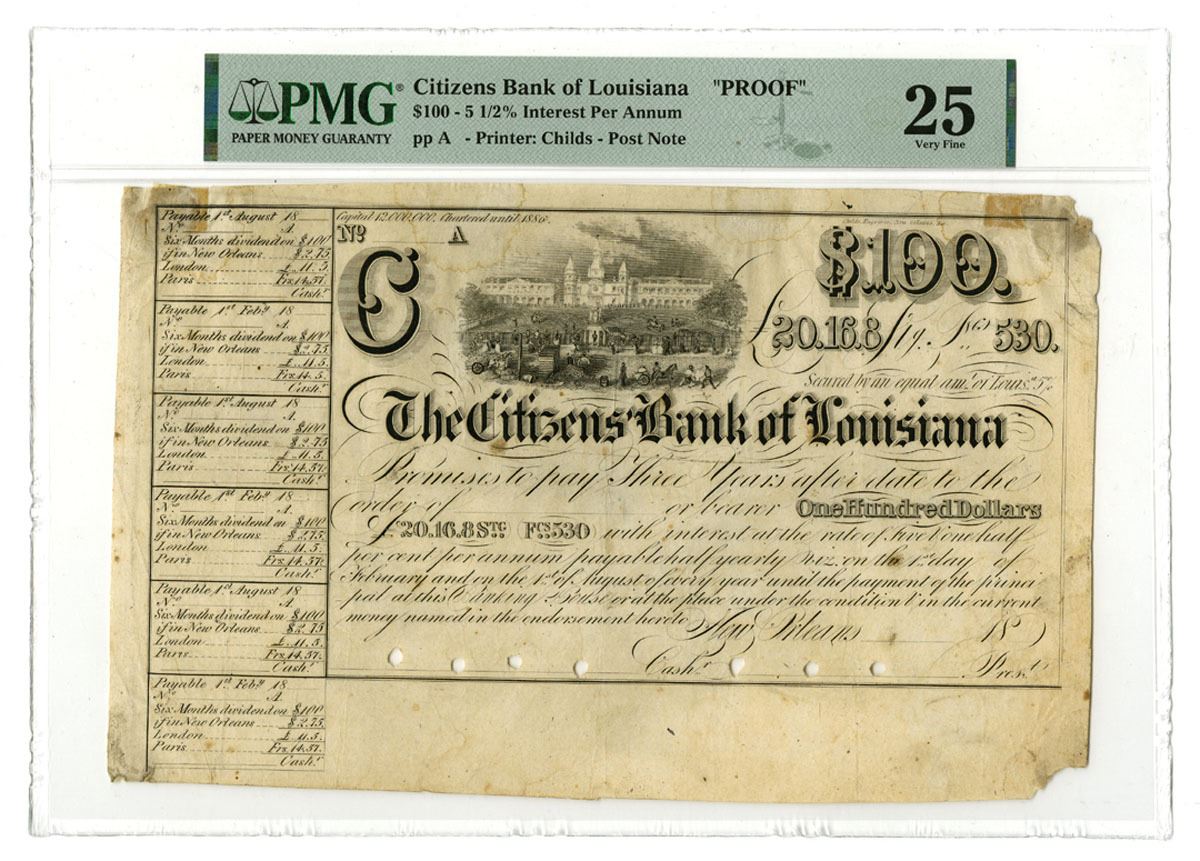 PMG®
PAPER MONEY GUARANTY
Citizens Bank of Louisiana "PROOF"
$100 - 5 1/2% Interest Per Annum
pp A - Printer: Childs - Post Note
25
Very Fine
Payable 1st August 18
No A.
Six Months dividend on $100
if in New Orleans $2.75
London £ 11.5.
Paris Frs. 14.57.
Cashr
Payable 1st Feby 18
No A.
Six Months dividend on $100
if in New Orleans $2.75
London £ 11.5.
Paris Frs. 14.5.
Cashr
Payable 1st August 18
No A.
Six Months dividend on $100
if in New Orleans $2.75
London £ 11.5.
Paris Frs. 14.57.
Cashr
Payable 1st Feby 18
No A.
Six Months dividend on $100
if in New Orleans $2.75.
London £ 11.5.
Paris Frs. 14.57.
Cashr
Payable 1st August 18
No A.
Six Months dividend on $100
if in New Orleans $2.75
London £ 11.5.
Paris Frs. 14.57.
Cashr
Payable 1st Feby 18
No A.
Six Months dividend on $100
if in New Orleans $2.75.
London £ 11.5.
Paris Frs. 14.57.
Cashr
Capital 12,000,000. Chartered until 1886.
No A
C
$100.
£20.16.8 Stg. Fcs 530.
Secured by an equal amt of Louisa 5
The Citizens' Bank of Louisiana
Promises to pay Three Years after date to the
order of or bearer One Hundred Dollars
£20.16.8 STG FCS 530 with interest at the rate of Five & one half
per cent per annum payable half yearly Viz: on the 1st day of
February and on the 1st of August of every year until the payment of the princi
pal at this Banking House or at the place under the condition & in the current
money named in the endorsement hereto New Orleans 18
Cashr Prest